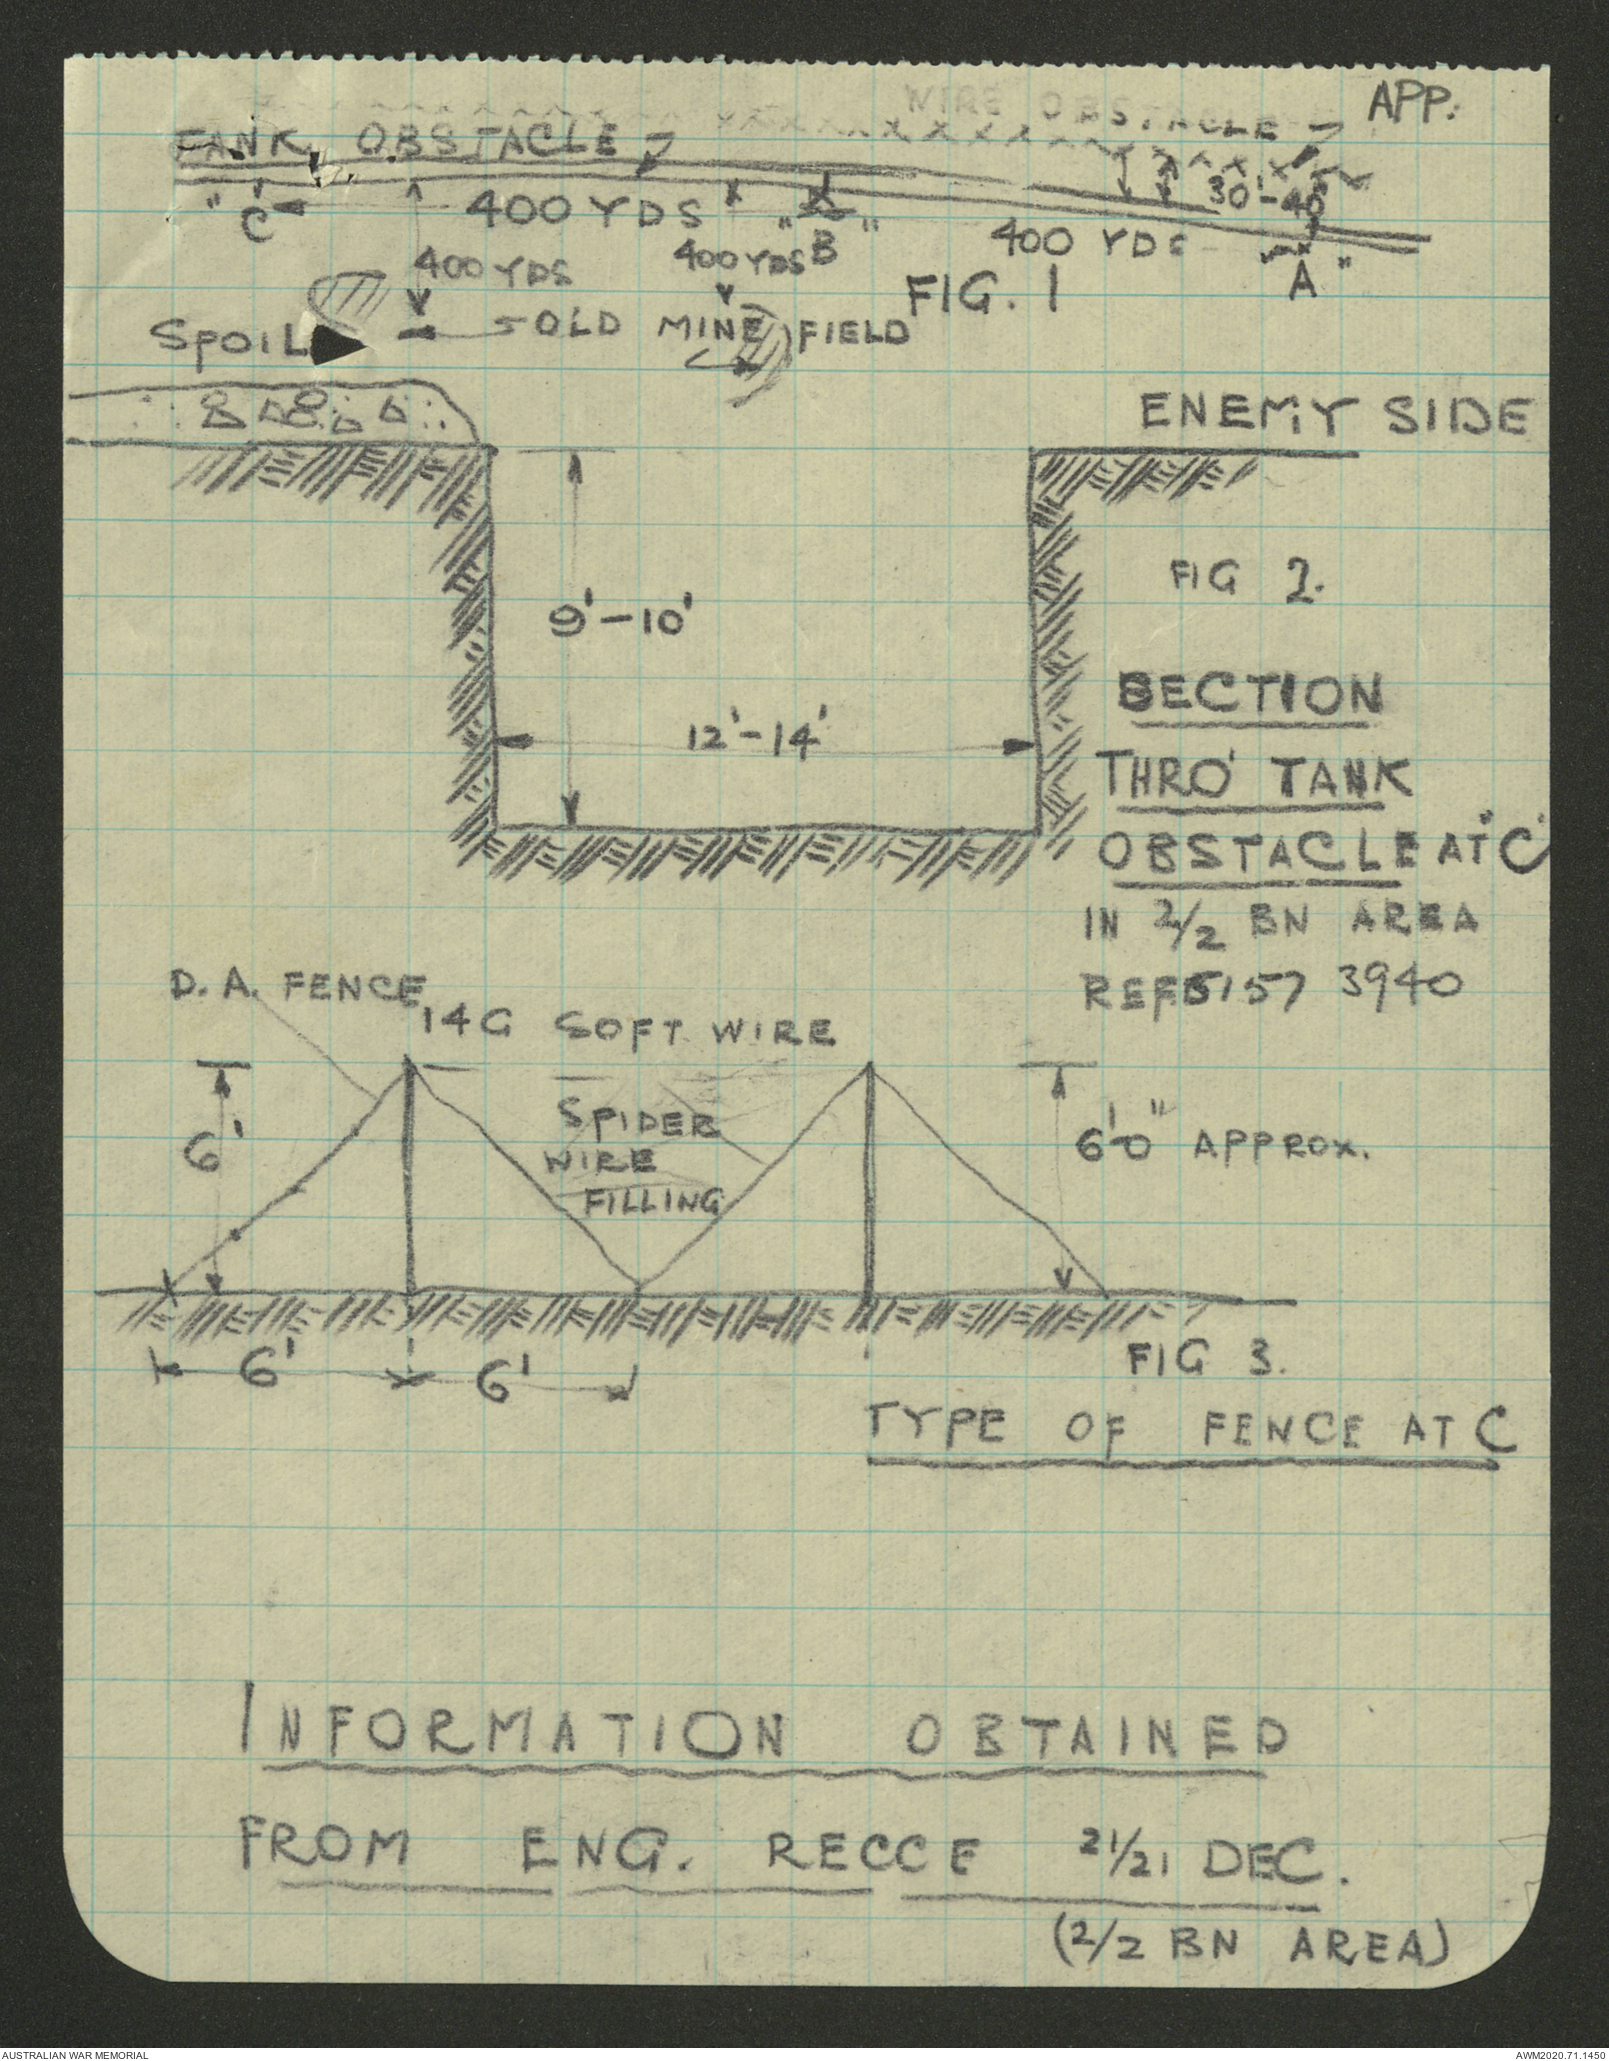 APP:
WIRE OBSTACLE
TANK OBSTACLE
30'-40'
"C" 400 YDS "B" 400 YDS "A"
400 YDS 400 YDS
FIG. 1
SPOIL OLD MINE FIELD
ENEMY SIDE
FIG 2.
9'-10'
12'-14'
SECTION
THRO' TANK
OBSTACLE AT "C"
IN 2/2 BN AREA
REF 5157 3940
D.A. FENCE
14G SOFT WIRE
SPIDER
WIRE
FILLING
6'
6'0" APPROX.
6' 6'
FIG 3.
TYPE OF FENCE AT C
INFORMATION OBTAINED
FROM ENG. RECCE 21/21 DEC.
(2/2 BN AREA)
AUSTRALIAN WAR MEMORIAL
AWM2020.71.1450